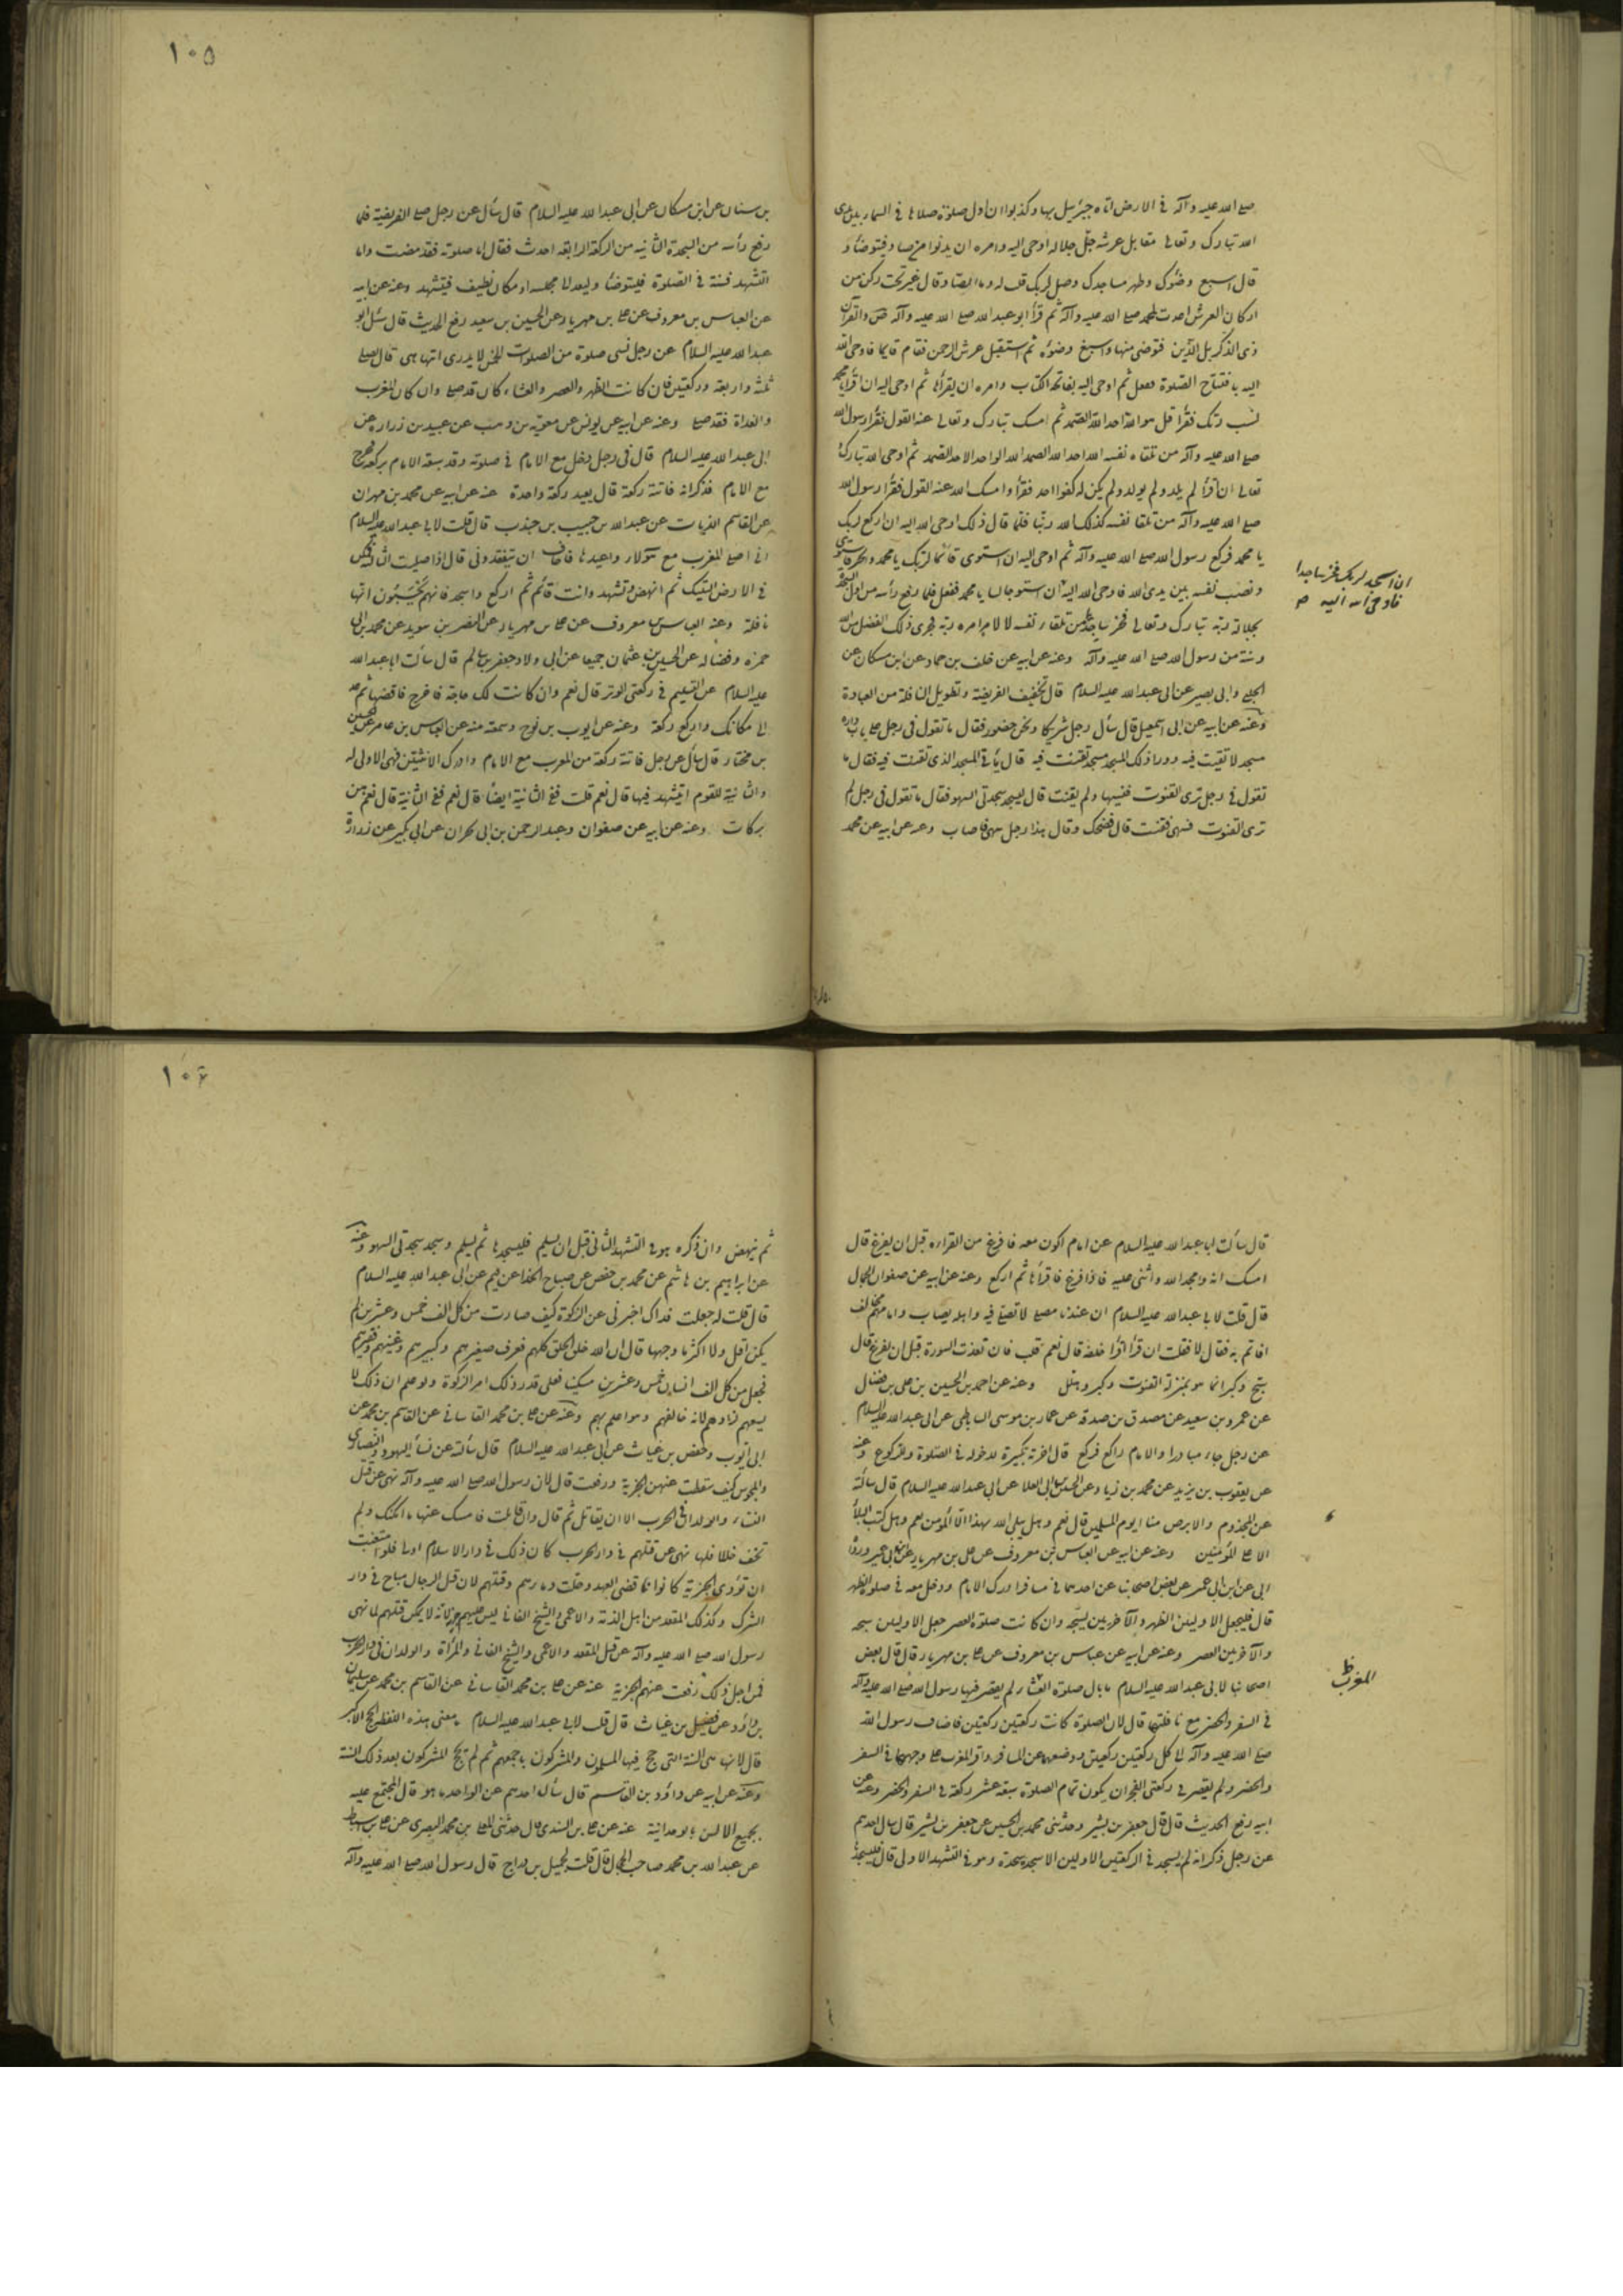 ١٠٥
صلى الله عليه وآله في الارض اتاه جبرئيل بها وكذبوا ان اول صلوة صلاها في السماء بين يدى
الله تبارك وتعالى مقابل عرشه جل جلاله اوحى اليه وامره ان يدنوا من صاد فيتوضأ و
قال اسبغ وضوك وطهر مساجدك وصل لربك قلت له وما الصاد قال عين تحت ركن من
اركان العرش اعدت لمحمد صلى الله عليه وآله ثم قرأ ابو عبد الله صلى الله عليه وآله ص والقرآن
ذى الذكر بل الذين فتوضى منها واسبغ وضوءه ثم استقبل عرش الرحمن فقام قايما فاوحى الله
اليه بافتتاح الصلوة ففعل ثم اوحى اليه بفاتحة الكتاب وامره ان يقرأها ثم اوحى اليه ان اقرأ يا محمد
نسب ربك فقرأ قل هو الله احد الله الصمد ثم امسك تبارك وتعالى عنه القول فقرأ رسول الله
صلى الله عليه وآله من تلقاء نفسه الله احد الله الصمد الله الواحد الاحد الصمد ثم اوحى الله تبارك و
تعالى ان اقرأ لم يلد ولم يولد ولم يكن له كفوا احد فقرأ وامسك الله عنه القول فقرأ رسول الله
صلى الله عليه وآله من تلقا نفسه كذلك الله ربنا فلما قال ذلك اوحى الله اليه ان اركع لربك
يا محمد فركع رسول الله صلى الله عليه وآله ثم اوحى اليه ان استوى قائما لربك يا محمد
ونصب نفسه بين يدى الله فاوحى الله اليه ان استو جالسا يا محمد ففعل فلما رفع رأسه من اول السجدة
بجلالة ربه تبارك وتعالى فخر ساجدا من تلقاء نفسه لا لامر امره ربه فجرى ذلك الفضل من الله
وسنة من رسول الله صلى الله عليه وآله وعنه عن ابيه عن خلف بن حماد عن ابن مسكان عن
الحلبى وابى بصير عن ابى عبد الله عليه السلام قال تخفيف الفريضة وتطويل النافلة من العبادة
وعنه عن ابيه عن ابى اسمعيل قال سأل رجل شريكا ونحن حضور فقال ما تقول في رجل على باب داره
مسجد لا تقنت فيه ووراء ذلك المسجد مسجد تقنت فيه قال يأتى المسجد الذى تقنت فيه فقال ما
تقول في رجل ترى القنوت فنسيها ولم يقنت قال يسجد سجدتى السهو فقال ما تقول في رجل لم
ترى القنوت فسهى فقنت قال فضحك وقال هذا رجل سهى فاصاب وعنه عن ابيه عن محمد
ان اسجد لربك فخر ساجدا
فاوحى الله اليه ص
بن سنان عن ابن مسكان عن ابى عبد الله عليه السلام قال سأل عن رجل صلى الفريضة فلما
رفع رأسه من السجدة الثانية من الركعة الرابعة احدث فقال اما صلوته فقد مضت واما
التشهد فسنة في الصلوة فليتوضأ وليعد الى مجلسه او مكان نظيف فيتشهد وعنه عن ابيه
عن العباس بن معروف عن على بن مهزيار وعن الحسين بن سعيد رفع الحديث قال سئل ابو
عبد الله عليه السلام عن رجل نسى صلوة من الصلوات الخمس لا يدرى ايتها هى قال يصلى
ثلثة واربعة وركعتين فان كانت الظهر والعصر والعشاء كان قد صلى وان كان المغرب
والغداة فقد صلى وعنه عن ابيه عن يونس عن معوية بن وهب عن عبيد بن زرارة عن
ابى عبد الله عليه السلام قال في رجل دخل مع الامام في صلوته وقد سبقه الامام بركعة فخرج
مع الامام فذكر انه فاتته ركعة قال يعيد ركعة واحدة عنه عن ابيه عن محمد بن مهران
عن القاسم الزيات عن عبد الله بن حبيب بن جندب قال قلت لابى عبد الله عليه السلام
انى اصلى المغرب مع هؤلاء واعيدها فاخاف ان تيفقدونى قال اذا صليت الثالثة فمكن
في الارض اليتيك ثم انهض وتشهد وانت قائم ثم اركع واسجد فانهم يحسبون انها
نافلة وعنه العباس بن معروف عن على بن مهزيار عن النضر بن سويد عن محمد بن ابى
حمزه وفضاله عن الحسين بن عثمان جميعا عن ابى ولاد جعفر بن سالم قال سألت ابا عبد الله
عليه السلام عن التسليم في ركعتى الوتر قال نعم وان كانت لك حاجة فاخرج فاقضها ثم عد
الى مكانك واركع ركعة وعنه عن ايوب بن نوح وسمعته منه عن العباس بن عامر عن الحسين
بن مختار قال سأل عن رجل فاتته ركعة من المغرب مع الامام وادرك الاثنتين فهى الاولى له
والثانية للقوم ايتشهد فيها قال نعم قلت ففى الثانية ايضا قال نعم ففى الثالثة قال نعم هن
بركات وعنه عن ابيه عن صفوان وعبد الرحمن بن ابى نجران عن ابى بكير عن زرارة
١٠٦
قال سألت ابا عبد الله عليه السلام عن امام اكون معه فافرغ من القراءة قبل ان يفرغ قال
امسك اية ومجد الله واثنى عليه فاذا فرغ فاقرأها ثم اركع وعنه عن ابيه عن صفوان الجمال
قال قلت لابى عبد الله عليه السلام ان عندنا مصلى لا نصلى فيه واهله نصاب وامامهم مخالف
افاتم به فقال لا فقلت ان قرأ اقرأ خلفه قال نعم قلت فان نفذت السورة قبل ان يفرغ قال
سبح وكبر انما هو بمنزلة القنوت وكبر وهلل وعنه عن احمد بن الحسين بن على بن فضال
عن عمرو بن سعيد عن مصدق بن صدقة عن عمار بن موسى الساباطى عن ابى عبد الله عليه السلام
عن رجل جاء مبادرا والامام راكع فركع قال اجزته تكبيرة لدخوله في الصلوة والركوع وعنه
عن يعقوب بن يزيد عن محمد بن زياد وعن الحسين بن ابى العلا عن ابى عبد الله عليه السلام قال سألته
عن المجذوم والابرص منا ايوم المسلمين قال نعم وهل يبلى الله بهذا الا المؤمن نعم وهل كتب البلأ
الا على المؤمنين وعنه عن ابيه عن العباس بن معروف عن على بن مهزيار
ابى عن ابن ابى عمير عن بعض اصحابنا عن احدهما في مسافر ادرك الامام ودخل معه في صلوة الظهر
قال فليجعل الاوليين الظهر والآخريين السبحة وان كانت صلوة العصر جعل الاوليين سبحه
والآخريين العصر وعنه عن ابيه عن عباس بن معروف عن على بن مهزيار قال قال بعض
اصحابنا لابى عبد الله عليه السلام ما بال صلوة العشاء لم يقصر فيها رسول الله صلى الله عليه وآله
في السفر والحضر مع نافلتها قال لان الصلوة كانت ركعتين ركعتين فاضاف رسول الله
صلى الله عليه وآله الى كل ركعتين ركعتين ووضعهما عن المسافر واقر المغرب على وجهها في السفر
والحضر ولم يقصر في ركعتى الفجر ان يكون تمام الصلوة سبعة عشر ركعة في السفر والحضر وعنه عن
ابيه رفع الحديث قال قال جعفر بن بشير وحدثنى محمد بن الحسين عن جعفر بن بشير قال سأل احدهم
عن رجل ذكر انه لم يسجد في الركعتين الاوليين الا سجدة سجدة وهو في التشهد الاولى قال فليسجد
المغرب ظ
ثم ينهض وان ذكره هو في التشهد الثانى قبل ان يسلم فليسجدها ثم يسلم ويسجد سجدتى السهو وعنه
عن ابراهيم بن هاشم عن محمد بن حفص عن صباح الحذا عن قثم عن ابى عبد الله عليه السلام
قال قلت له جعلت فداك اخبرنى عن الزكوة كيف صارت من كل الف خمس وعشرين لم
يكن اقل ولا اكثر ما وجهها قال ان الله خلق الخلق كلهم فعرف صغيرهم وكبيرهم وغنيهم وفقيرهم
فجعل من كل الف انسان خمس وعشرين مسكينا فعلى قدر ذلك امر الزكوة ولو علم ان ذلك لا
يسعهم لزادهم لانه خالقهم وهو اعلم بهم وعنه عن على بن محمد القاسانى عن القاسم بن محمد عن
ابى ايوب وحفص بن غياث عن ابى عبد الله عليه السلام قال سألته عن نسأ اليهود والنصارى
والمجوس كيف سقطت عنهن الجزية ورفعت قال لان رسول الله صلى الله عليه وآله نهى عن قتل
النساء والولدان في الحرب الا ان يقاتل ثم قال وان قاتلت فامسك عنها ما امكنك ولم
تخف خللا فلما نهى عن قتلهم في دار الحرب كان ذلك في دار الاسلام اولى فلو امتنعت
ان تؤدى الجزية كانوا ناقضى العهد وحلت دماءهم وقتلهم لان قتل الرجال مباح في دار
الشرك وكذلك المقعد من اهل الذمة والاعمى والشيخ الفانى ليس عليهم جزية لانه لا يمكن قتلهم لما نهى
رسول الله صلى الله عليه وآله عن قتل المقعد والاعمى والشيخ الفانى والمرأة والولدان في دار الحرب
فمن اجل ذلك رفعت عنهم الجزية عنه عن على بن محمد القاسانى عن القاسم بن محمد عن سليمان
بن داود عن فضيل بن غياث قال قلت لابى عبد الله عليه السلام ما معنى هذه اللفظ الحج الاكبر
قال لانها هى السنة التى حج فيها المسلمون والمشركون باجمعهم ثم لم يحج المشركون بعد ذلك السنة
وعنه عن ابيه عن داود بن القاسم قال سأله احدهم عن الواحد ما هو قال المجتمع عليه
بجميع الالسن بالوحدانية عنه عن على بن السندى قال حدثنى المعلى بن محمد البصرى عن على بن اسباط
عن عبد الله بن محمد صاحب الحجال قال قلت لجميل بن دراج قال رسول الله صلى الله عليه وآله